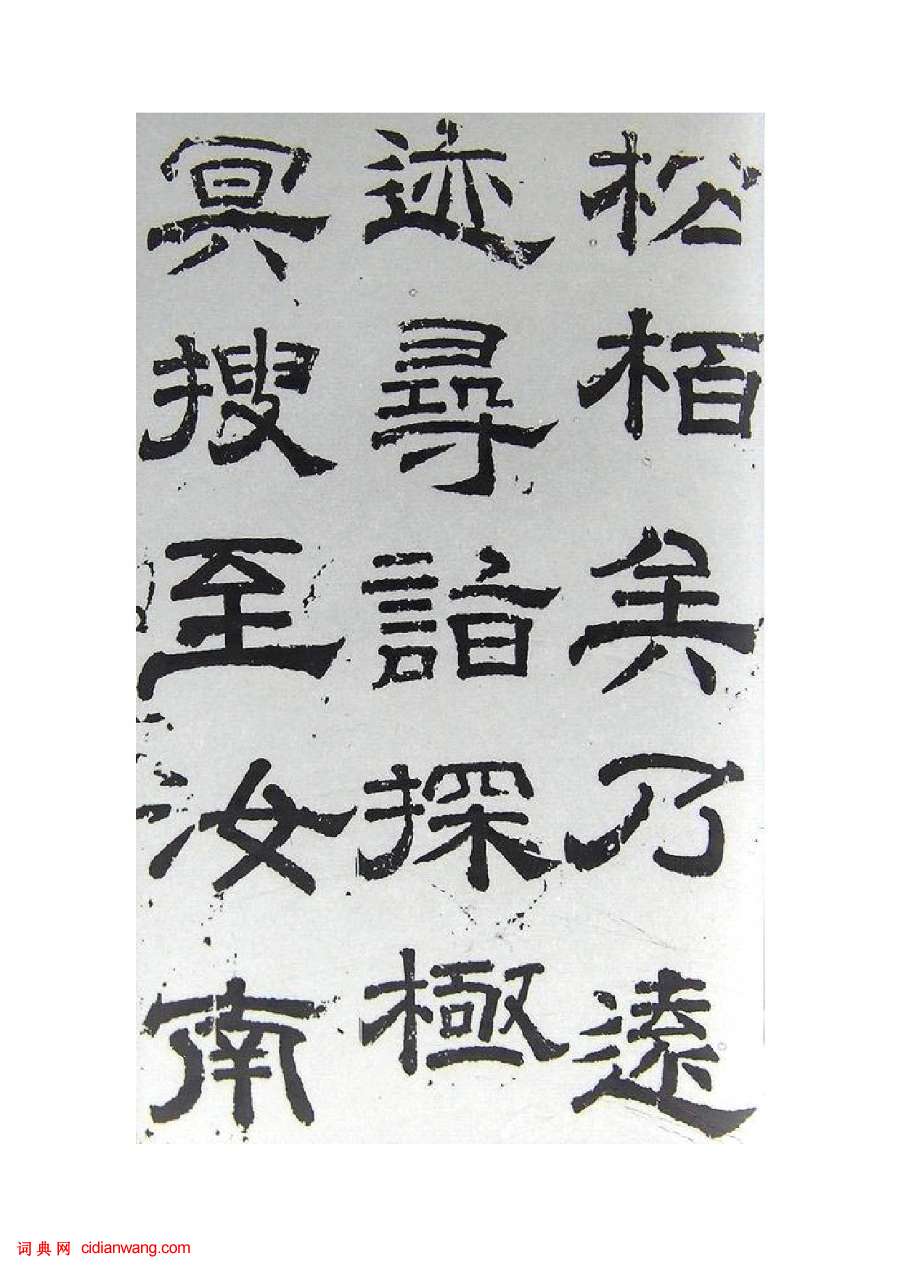 松栢矣乃遠
迹尋詣探極
冥搜至汝南
词典网 cidianwang.com